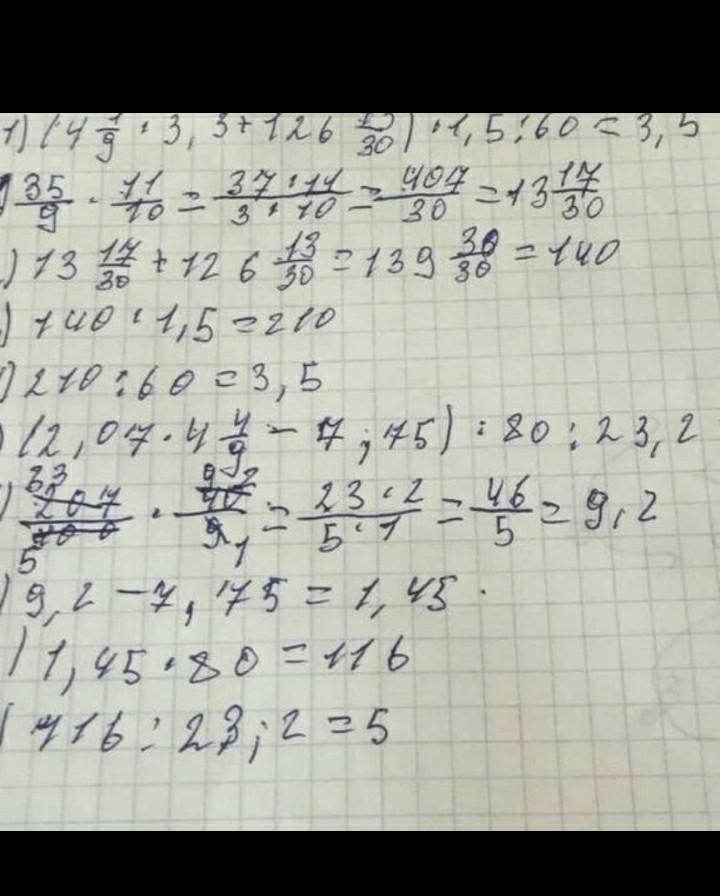 1) (4 1/9 · 3,3 + 126 13/30) · 1,5 : 60 = 3,5
) 35/9 · 11/10 = 37·11/3·10 = 407/30 = 13 17/30
) 13 17/30 + 126 13/30 = 139 30/30 = 140
) 140 · 1,5 = 210
) 210 : 60 = 3,5
) (2,07 · 4 4/9 - 7,75) : 80 : 23,2
) 207/100 · 40/9 = 23·2/5·1 = 46/5 = 9,2
) 9,2 - 7,75 = 1,45
) 1,45 · 80 = 116
) 116 : 23,2 = 5